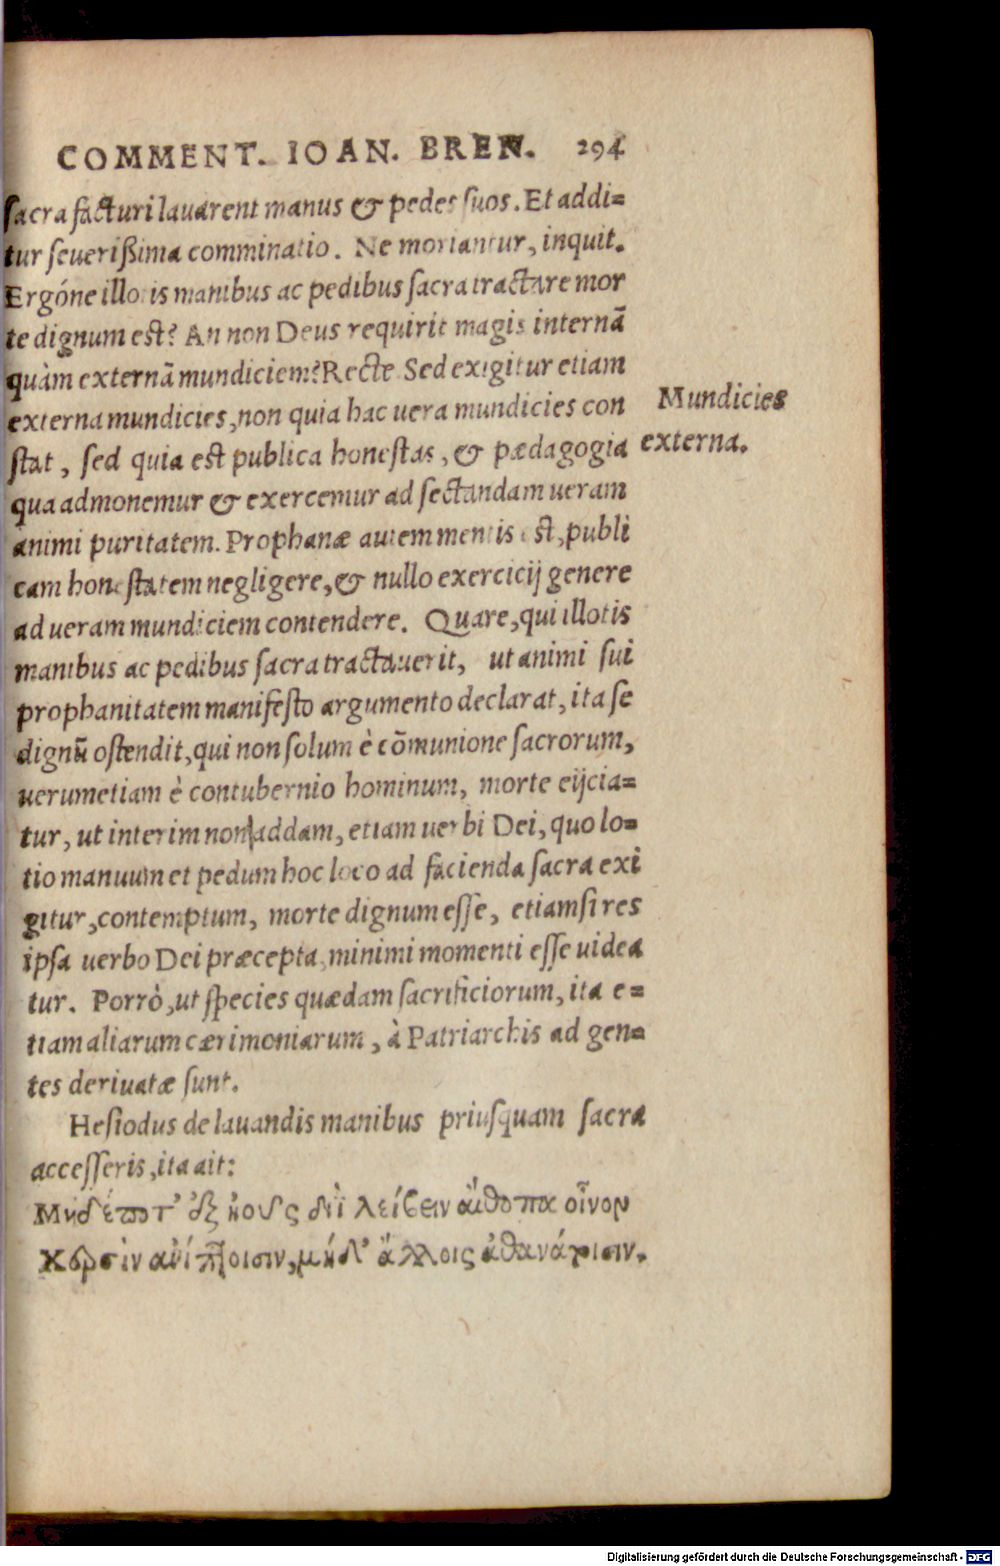 COMMENT. IOAN. BREN. 294
sacra facturi lauarent manus & pedes suos. Et addi=
tur seuerißima comminatio. Ne moriantur, inquit.
Ergóne illotis manibus ac pedibus sacra tractare mor
te dignum est? An non Deus requirit magis internã
quàm externã mundiciem? Recte. Sed exigitur etiam
externa mundicies, non quia hac uera mundicies con
stat, sed quia est publica honestas, & pædagogia
qua admonemur & exercemur ad sectandam ueram
animi puritatem. Prophanæ autem mentis est, publi
cam honestatem negligere, & nullo exercicij genere
ad ueram mundiciem contendere. Quare, qui illotis
manibus ac pedibus sacra tractauerit, ut animi sui
prophanitatem manifesto argumento declarat, ita se
dignũ ostendit, qui non solum è cõmunione sacrorum,
uerumetiam è contubernio hominum, morte eijcia=
tur, ut interim non addam, etiam uerbi Dei, quo lo=
tio manuum et pedum hoc loco ad facienda sacra exi
gitur, contemptum, morte dignum esse, etiamsi res
ipsa uerbo Dei præcepta, minimi momenti esse uidea
tur. Porrò, ut species quædam sacrificiorum, ita e=
tiam aliarum cærimoniarum, à Patriarchis ad gen=
tes deriuatæ sunt.
Hesiodus de lauandis manibus priusquam sacra
accesseris, ita ait:
Μηδέποτ' ἐξ ἠοῦς διῒ λείβειν αἴθοπα οἶνον
Χερσὶν ἀνίπτοισιν, μήδ' ἄλλοις ἀθανάτοισιν.
Mundicies
externa.
Digitalisierung gefördert durch die Deutsche Forschungsgemeinschaft - DFG